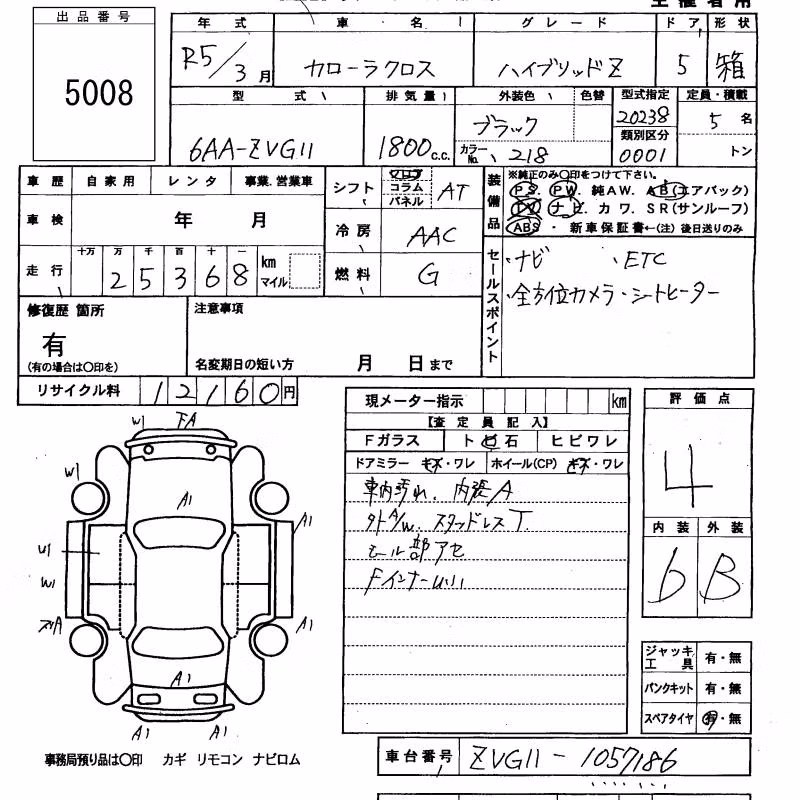 出品番号
5008
年式 車名 グレード ドア 形状
R5/3月 カローラクロス ハイブリッドZ 5 箱
型式 排気量 外装色 色替 型式指定 定員・積載
6AA-ZVG11 1800c.c. ブラック 20238 5名
カラーNo. 218 類別区分 0001 トン
車歴 自家用 レンタ 事業.営業車
車検 年 月
走行 十万 万 千 百 十 一
25368 km マイル
シフト フロア コラム パネル AT
冷房 AAC
燃料 G
装備品
※純正のみ〇印をつけて下さい。
PS. PW. 純AW. AB(エアバック)
TV. ナビ. カワ. SR(サンルーフ)
ABS ・ 新車保証書←(注) 後日送りのみ
セールスポイント
・ナビ ・ETC
・全方位カメラ・シートヒーター
修復歴 箇所
有
(有の場合は〇印を)
注意事項
名変期日の短い方 月 日まで
リサイクル料 12160円
現メーター指示 km
【査定員記入】
Fガラス トビ石 ヒビワレ
ドアミラー キズ・ワレ ホイール(CP) キズ・ワレ
車内汚れ. 内張A
外A/W. スタッドレスT
モール部アセ
Fインナー
評価点
4
内装 外装
b B
W1 FA
W1
A1
A1
W1
W1
A
A1
A1
A1 A1
ジャッキ工具 有・無
パンクキット 有・無
スペアタイヤ 有・無
事務局預り品は〇印 カギ リモコン ナビロム
車台番号 ZVG11-1057186